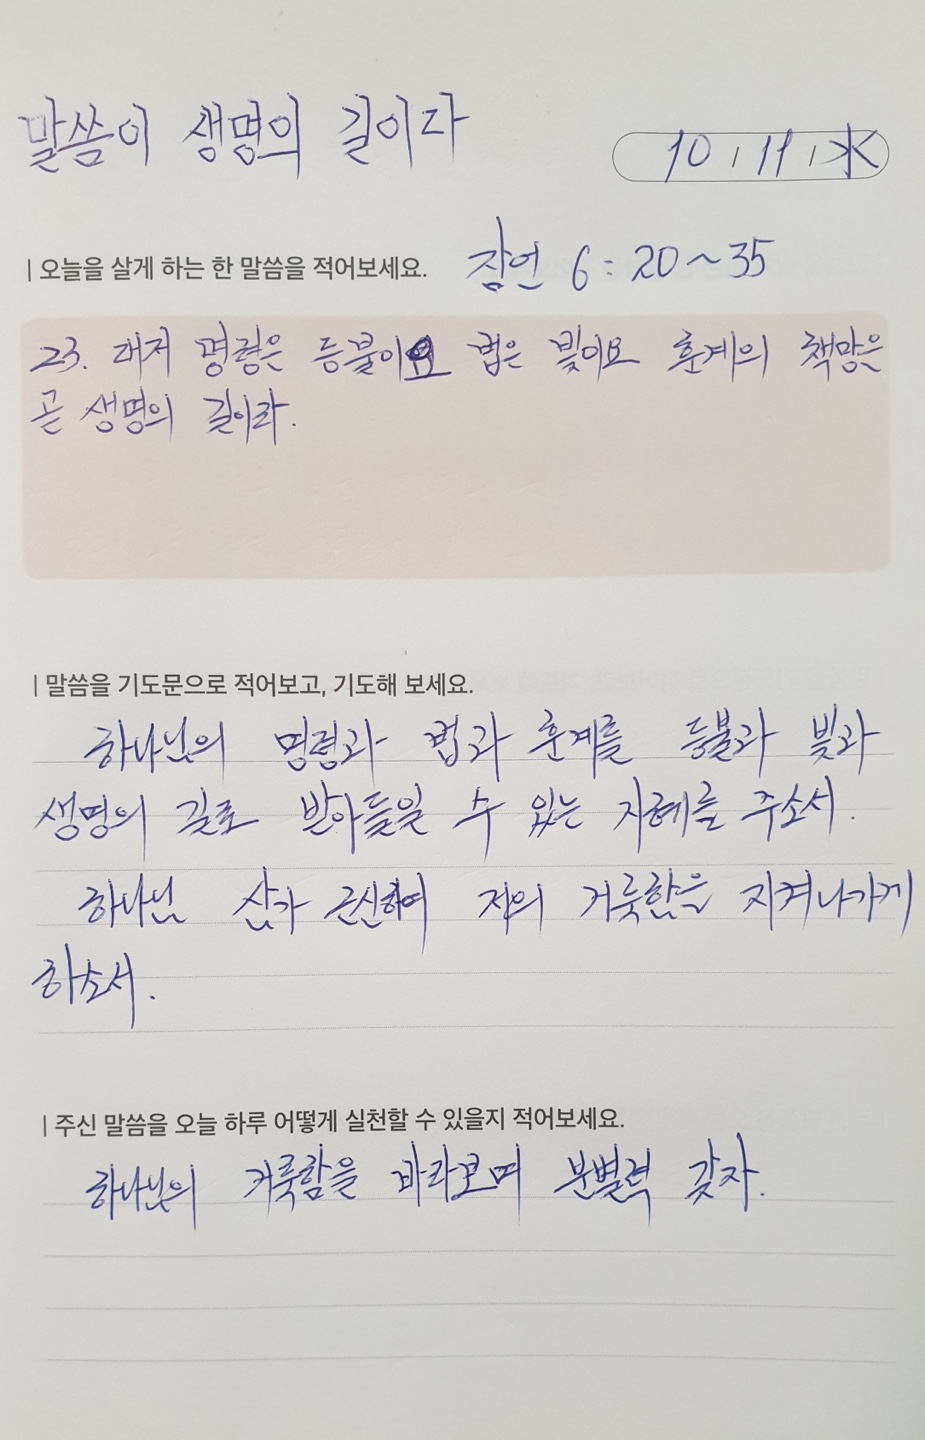 말씀이 생명의 길이다
10 / 11 / 水
| 오늘을 살게 하는 한 말씀을 적어보세요. 잠언 6 : 20~35
23. 대저 명령은 등불이요 법은 빛이요 훈계의 책망은
곧 생명의 길이라.
| 말씀을 기도문으로 적어보고, 기도해 보세요.
하나님의 명령과 법과 훈계를 등불과 빛과
생명의 길로 받아들일 수 있는 지혜를 주소서.
하나님 삼가 근신하여 저의 거룩함을 지켜나가게
하소서.
| 주신 말씀을 오늘 하루 어떻게 실천할 수 있을지 적어보세요.
하나님의 거룩함을 바라보며 분별력 갖자.